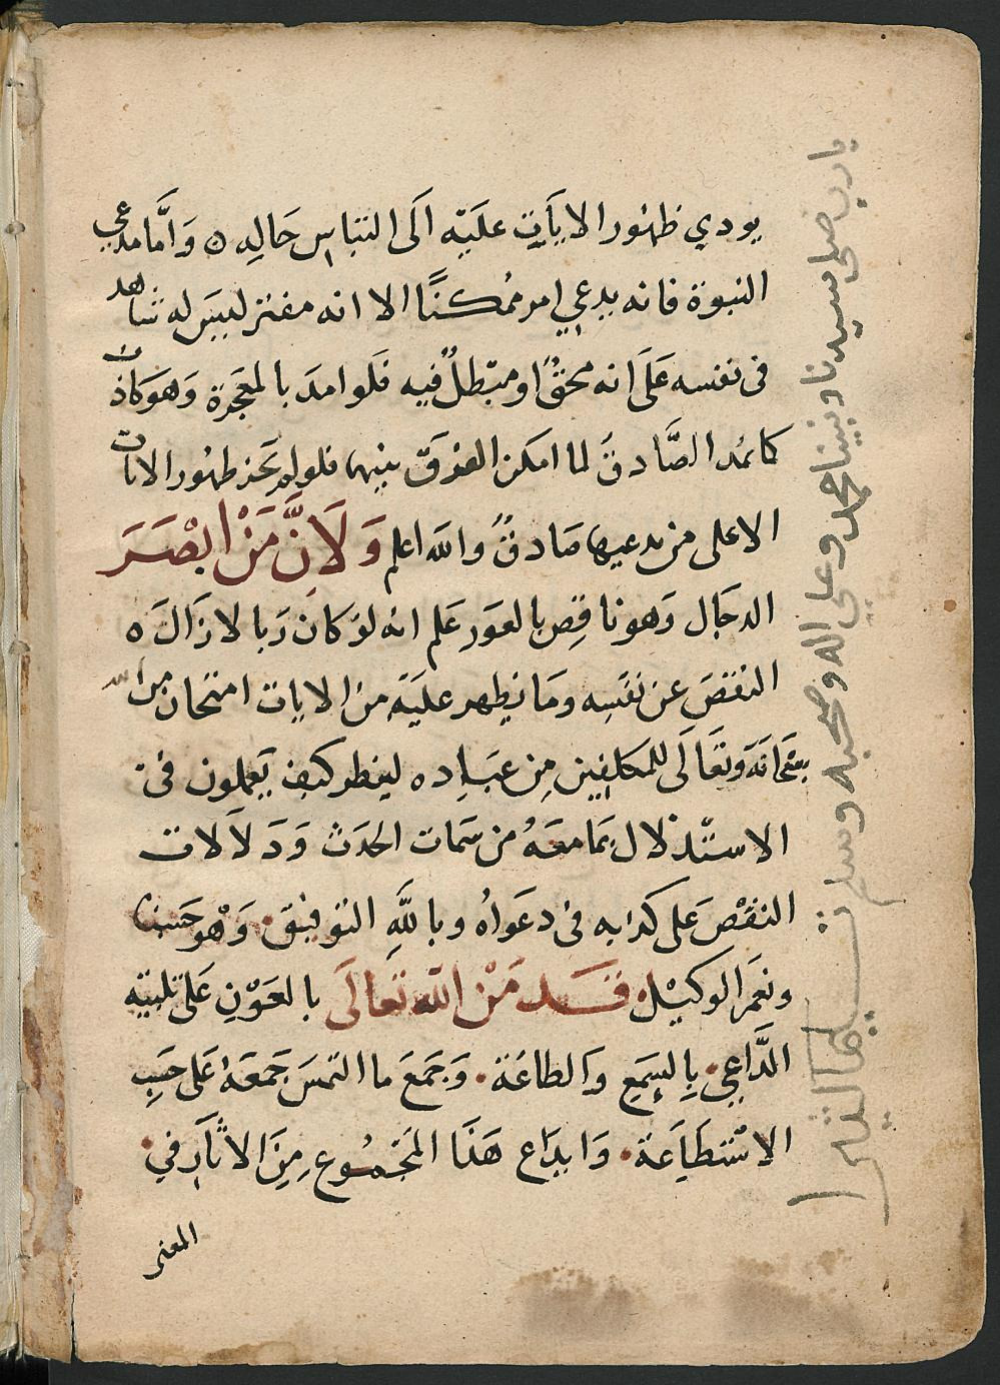 يودي ظهور الايات عليه الى التباس حاله ه واما مدعي
النبوة فانه يدعي امر ممكنا الا انه مفتر ليس له شاهد
في نفسه على انه محق او مبطل فيه فلو امد بالمعجزة وهو كاذب
كما يمد الصادق لما امكن الفرق بينهما فلو لم يجز ظهور الايات
الا على من يدعيها صادق والله اعلم ولان من ابصر
الدجال وهو ناقص بالعور علم انه لو كان ربا لازال ه
النقص عن نفسه وما يظهر عليه من الايات امتحان من الله
سبحانه وتعالى للمكلفين من عباده لينظر كيف يعملون في
الاستدلال بما معه من سمات الحدث ودلالات
النقص على كذابه في دعواه وبالله التوفيق وهو حسبنا
ونعم الوكيل قد من الله تعالى بالعون على تلبية
الداعي بالسمع والطاعة وجمع ما التمس جمعه على حسب
الاستطاعة وابداع هذا المجموع من الاثار في
المعنى
يا رب صلي سيدنا ونبينا محمد وعلى اله وصحبه وسلم